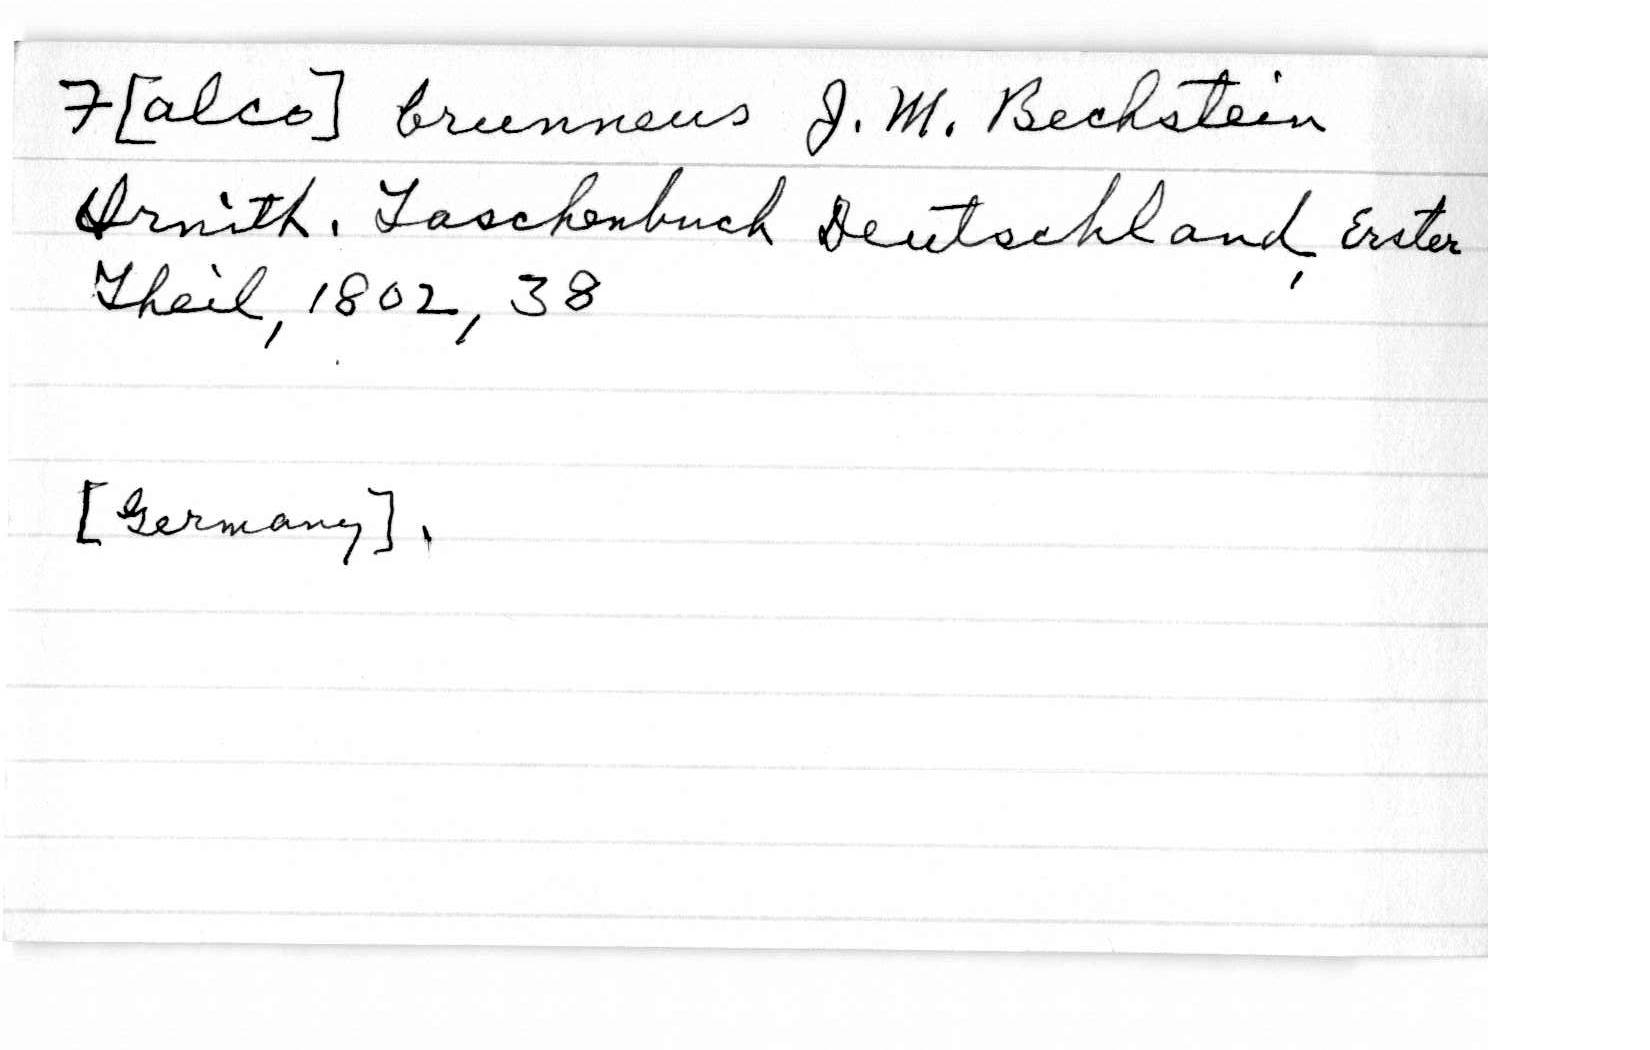 F[alco] brunneus J. M. Bechstein
Ornith. Taschenbuch Deutschland, Erster
Theil, 1802, 38
[Germany].